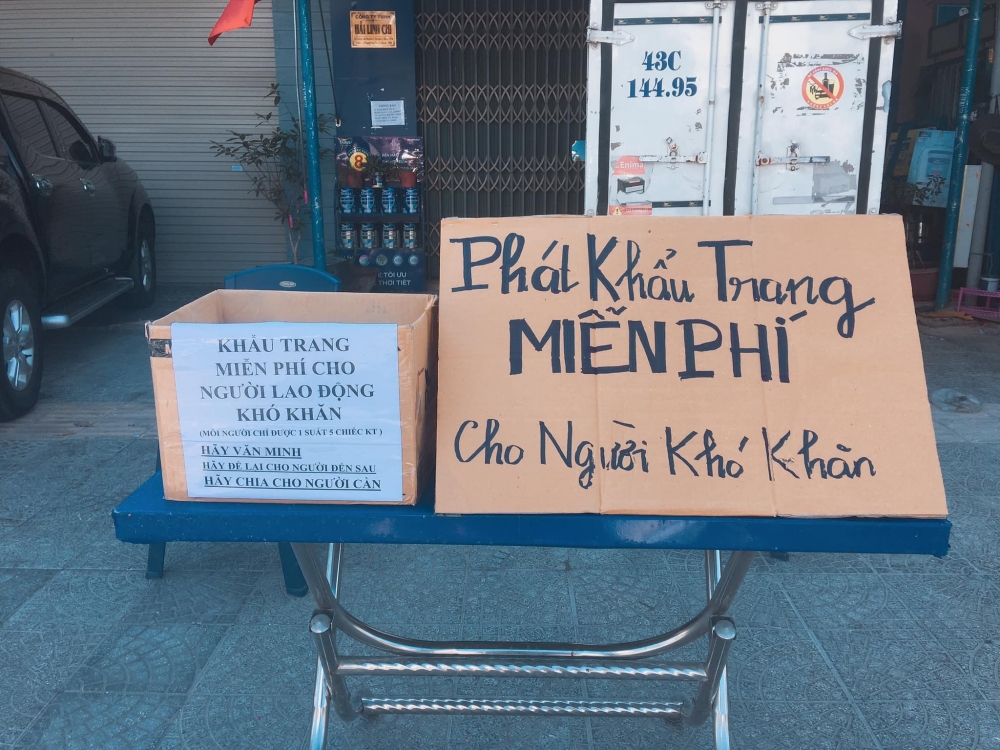 HẢI LINH CHI
43C
144.95
8
Phát Khẩu Trang
MIỄN PHÍ
Cho Người Khó Khăn
KHẨU TRANG
MIỄN PHÍ CHO
NGƯỜI LAO ĐỘNG
KHÓ KHĂN
(MỖI NGƯỜI CHỈ ĐƯỢC 1 SUẤT 5 CHIẾC KT )
HÃY VĂN MINH
HÃY ĐỂ LẠI CHO NGƯỜI ĐẾN SAU
HÃY CHIA CHO NGƯỜI CẦN